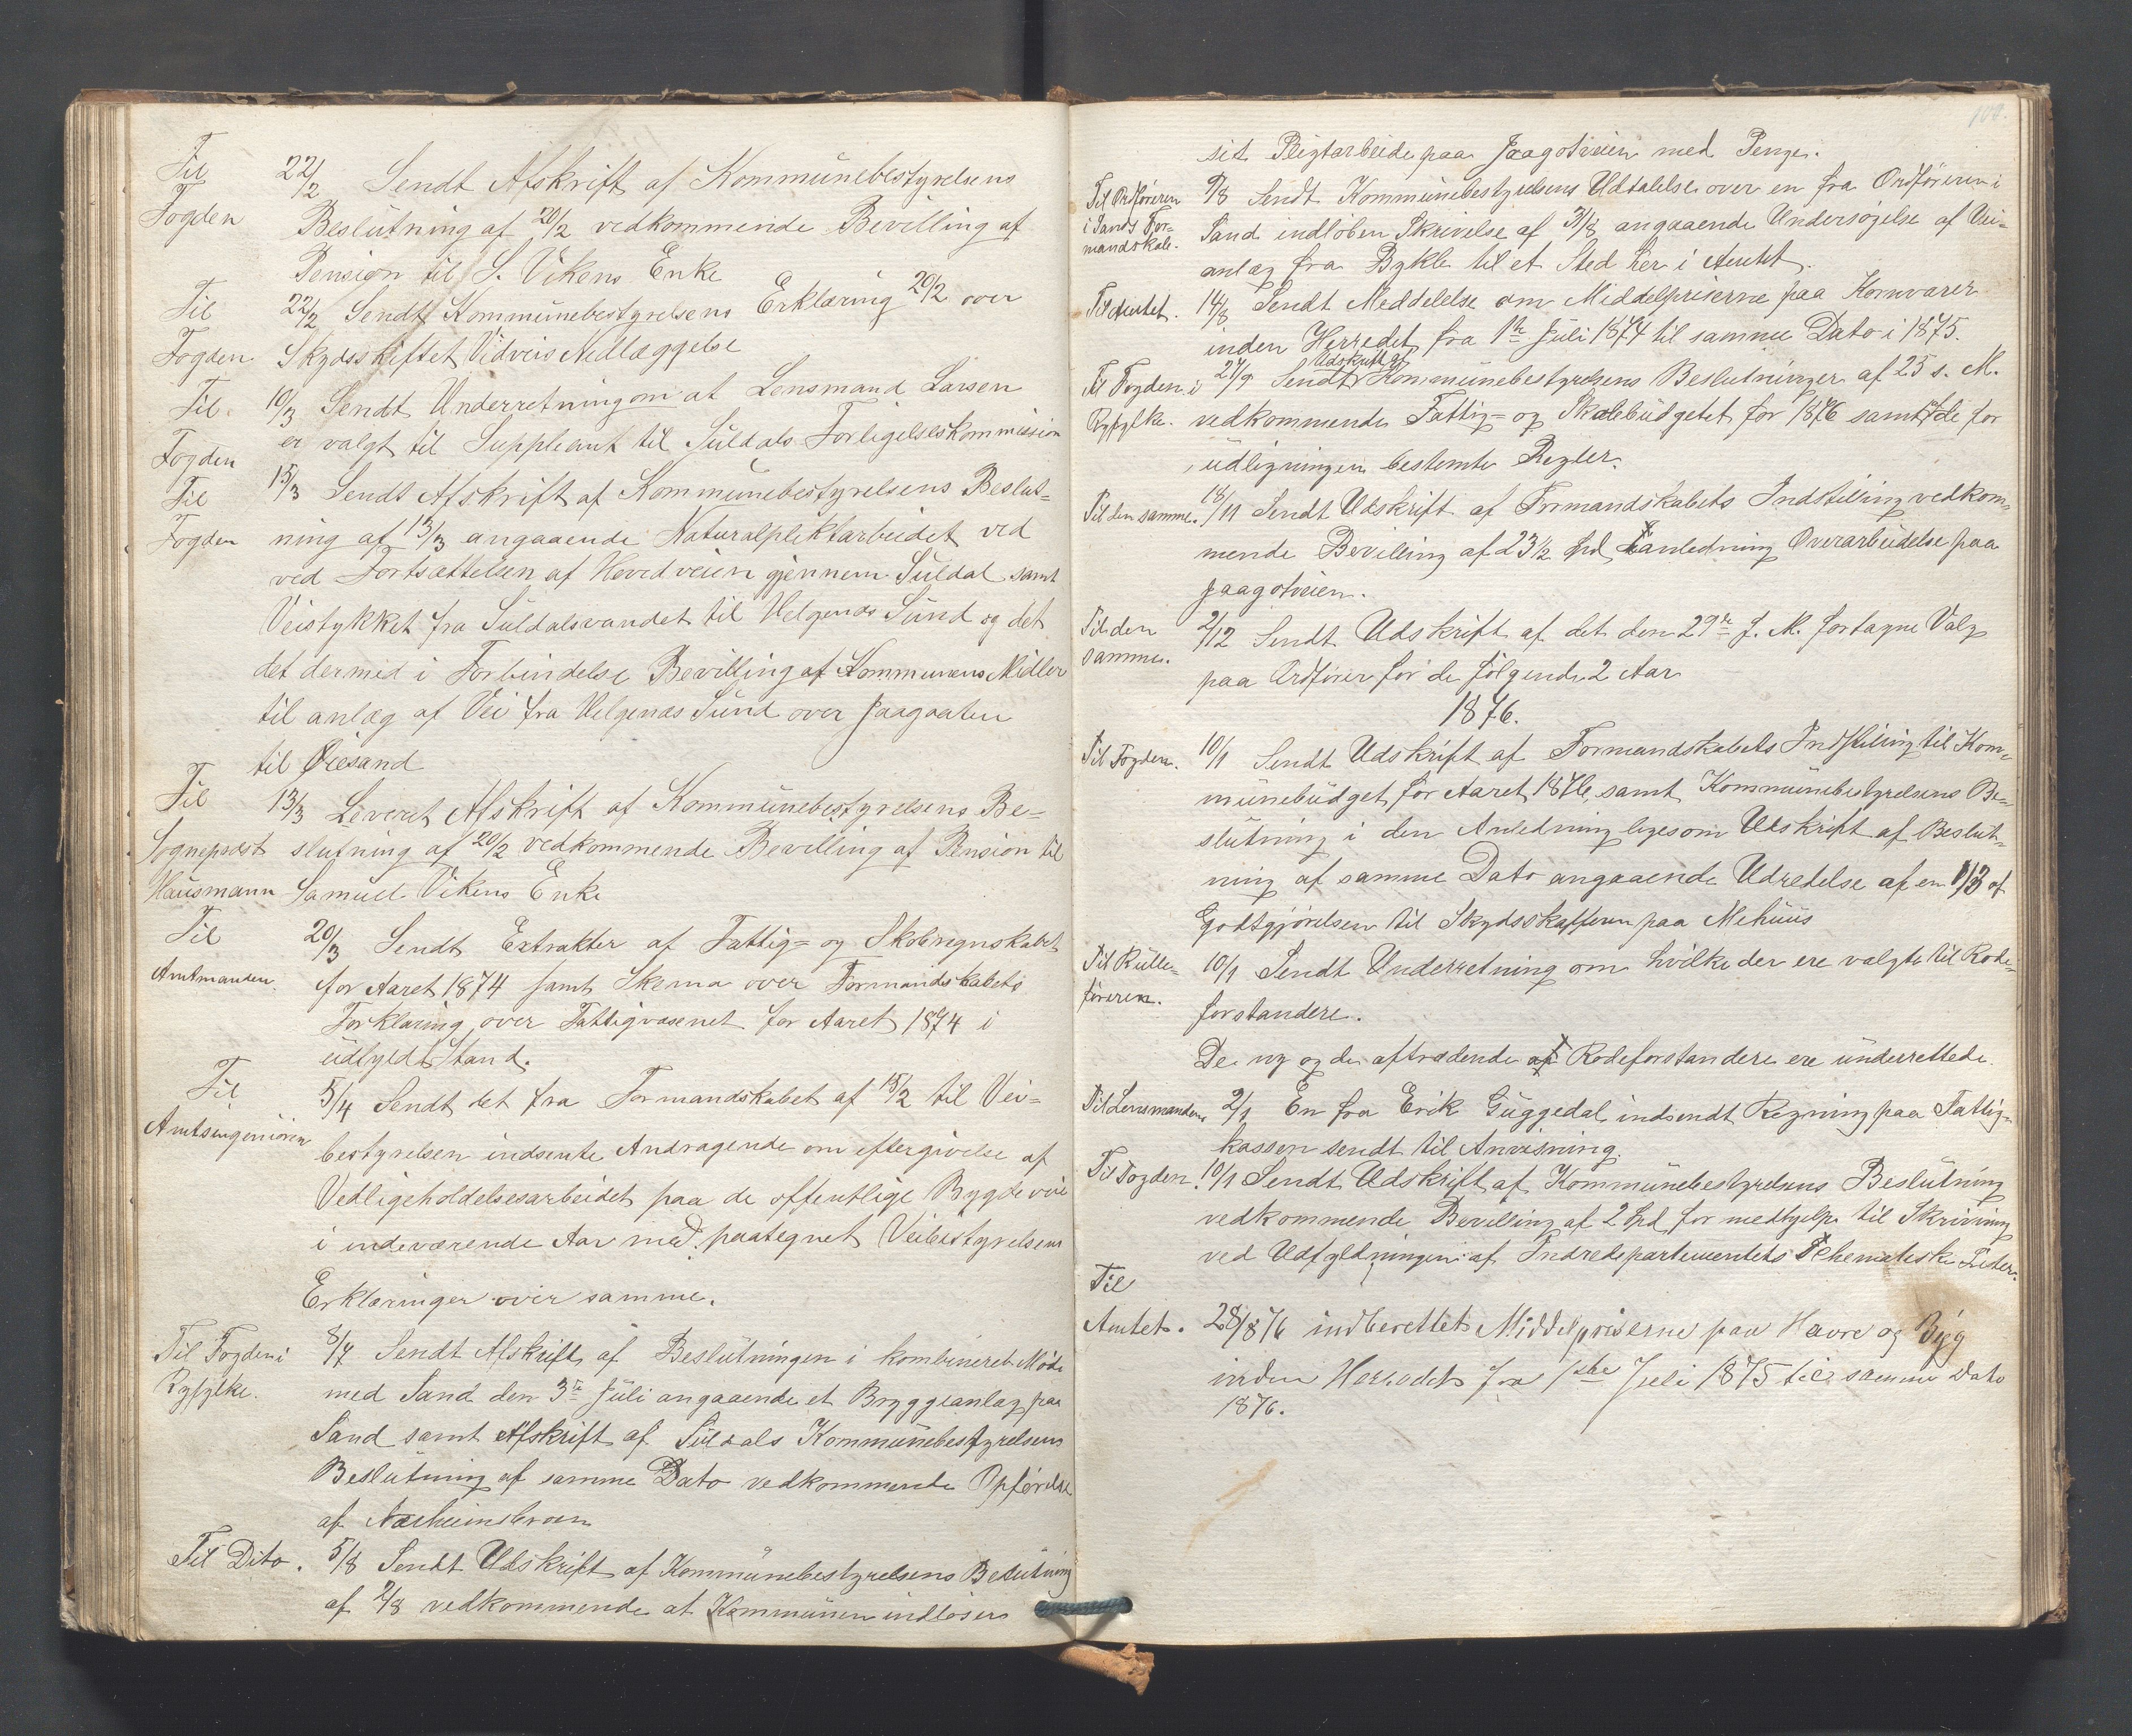 Til 22/2 Sendt Afskrift af Kommunebestyrelsens
Fogden Beslutning af 20/2 vedkommende Bevilling af
Pension til S. Vikens Enke
Til 22/2 Sendt Kommunebestyrelsens Erklæring 20/2 over
Fogden Skydsskiftet Vidveis Nedlæggelse
Til 10/3 Sendt Underretning om at Lensmand Larsen
Fogden er valgt til Suppleant til Suldals Forligelseskommission
Til 15/3 Sendt Afskrift af Kommunebestyrelsens Beslut=
Fogden ning af 13/3 angaaende Naturalpliktarbeidet ved
ved Fortsættelsen af Hovedveien gjennem Suldal samt
Veistykket fra Suldalsvandet til Helgenæs Sund og det
det dermed i Forbindelse Bevilling af Kommunens Midler
til anlæg af Vei fra Helgenæs Sund over Jaagaaten
til Øiesand
Til 13/3 Leveret Afskrift af Kommunebestyrelsens Be=
Sogneprest slutning af 20/2 vedkommende Bevilling af Pension til
Hausmann Samuel Vikens Enke
Til 20/3 Sendt Extrakter af Fattig= og Skoleregnskabet
Amtmanden. for Aaret 1874 samt Skema over Formandskabets
Forklaring over Fattigvæsenet for Aaret 1874 i
udfyldt Stand.
Til 5/4 Sendt det fra Formandskabet af 15/2 til Vei=
Amtsingeniøren bestyrelsen indsente Andragende om eftergivelse af
Vedligeholdelsesarbeidet paa de offentlige Bygdeveie
i indeværende Aar med paategnet Veibestyrelsens
Erklæringer over samme.
Til Fogden i 8/7 Sendt Afskrift af Beslutningen i kombineret Møde
Ryfylke. med Sand den 3de Juli angaaende et Bryggeanlæg paa
Sand samt Afskrift af Suldals Kommunebestyrelsens
Beslutning af samme Dato vedkommende Opførelse
af
Til Dito. 5/8 Sendt Udskrift af Kommunebestyrelsens Beslutning
af 2/8 vedkommende at Kommunen indløser
100.
sit Pligtarbeide paa Jaagotveien med Penge.
Til Ordføreren 9/8 Sendt Kommunebestyrelsens Udtalelse over en fra Ordføreren i
i Sands For= Sand indløben Skrivelse af 31/8 angaaende Undersøgelse af Vei=
mandskab. anlæg fra Bykle til et Sted her i Amtet.
Til Amtet. 14/8 Sendt Meddelelse om Middelpriserne paa Kornvarer
inden Herredet fra 1ste Juli 1874 til samme Dato i 1875.
Udskrift af
Til Fogden i 27/9 Sendt Kommunebestyrelsens Beslutninger af 25 s. M.
Ryfylke. vedkommende Fattig= og Skolebudgetet for 1876 samt de for
udligningen bestemte Regler.
Til den samme. 18/11 Sendt Udskrift af Formandskabets Indstilling vedkom=
mende Bevilling af 23 1/2 Spd anledning Overarbeidelse paa
Jaagotveien.
Til den 2/12 Sendt Udskrift af det den 29de f. M. fortagne Valg
samme. paa Ordfører for de følgende 2 Aar
1876.
Til Fogden. 10/1 Sendt Udskrift af Formandskabets Indstilling til Kom=
munebudget for Aaret 1876, samt Kommunebestyrelsens Be=
slutning i den Anledning ligesom Udskrift af Beslut=
ning af samme Dato angaaende Udredelse af en 1/3 af
Godtgjørelsen til Skydsskafferen paa Mehuus
Til Rulle= 10/1 Sendt Underretning om hvilke der ere valgte til Rode=
føreren. forstandere.
De ny og de aftrædende Rodeforstandere ere underrettede.
Til Lensmanden 2/1 En fra Erik Guggedal indsendt Regning paa Fattig=
kassen sendt til Anvisning.
Til Fogden. 10/1 Sendt Udskrift af Kommunebestyrelsens Beslutning
vedkommende Bevilling af 2 Spd for medhjelp til Skrivning
ved Udfyldningen af Indredepartementets Schematiske Lister.
Til
Amtet. 28/8 76 indberettet Middelpriserne paa Havre og Byg
inden Herredet fra 1ste Juli 1875 til samme Dato
1876.